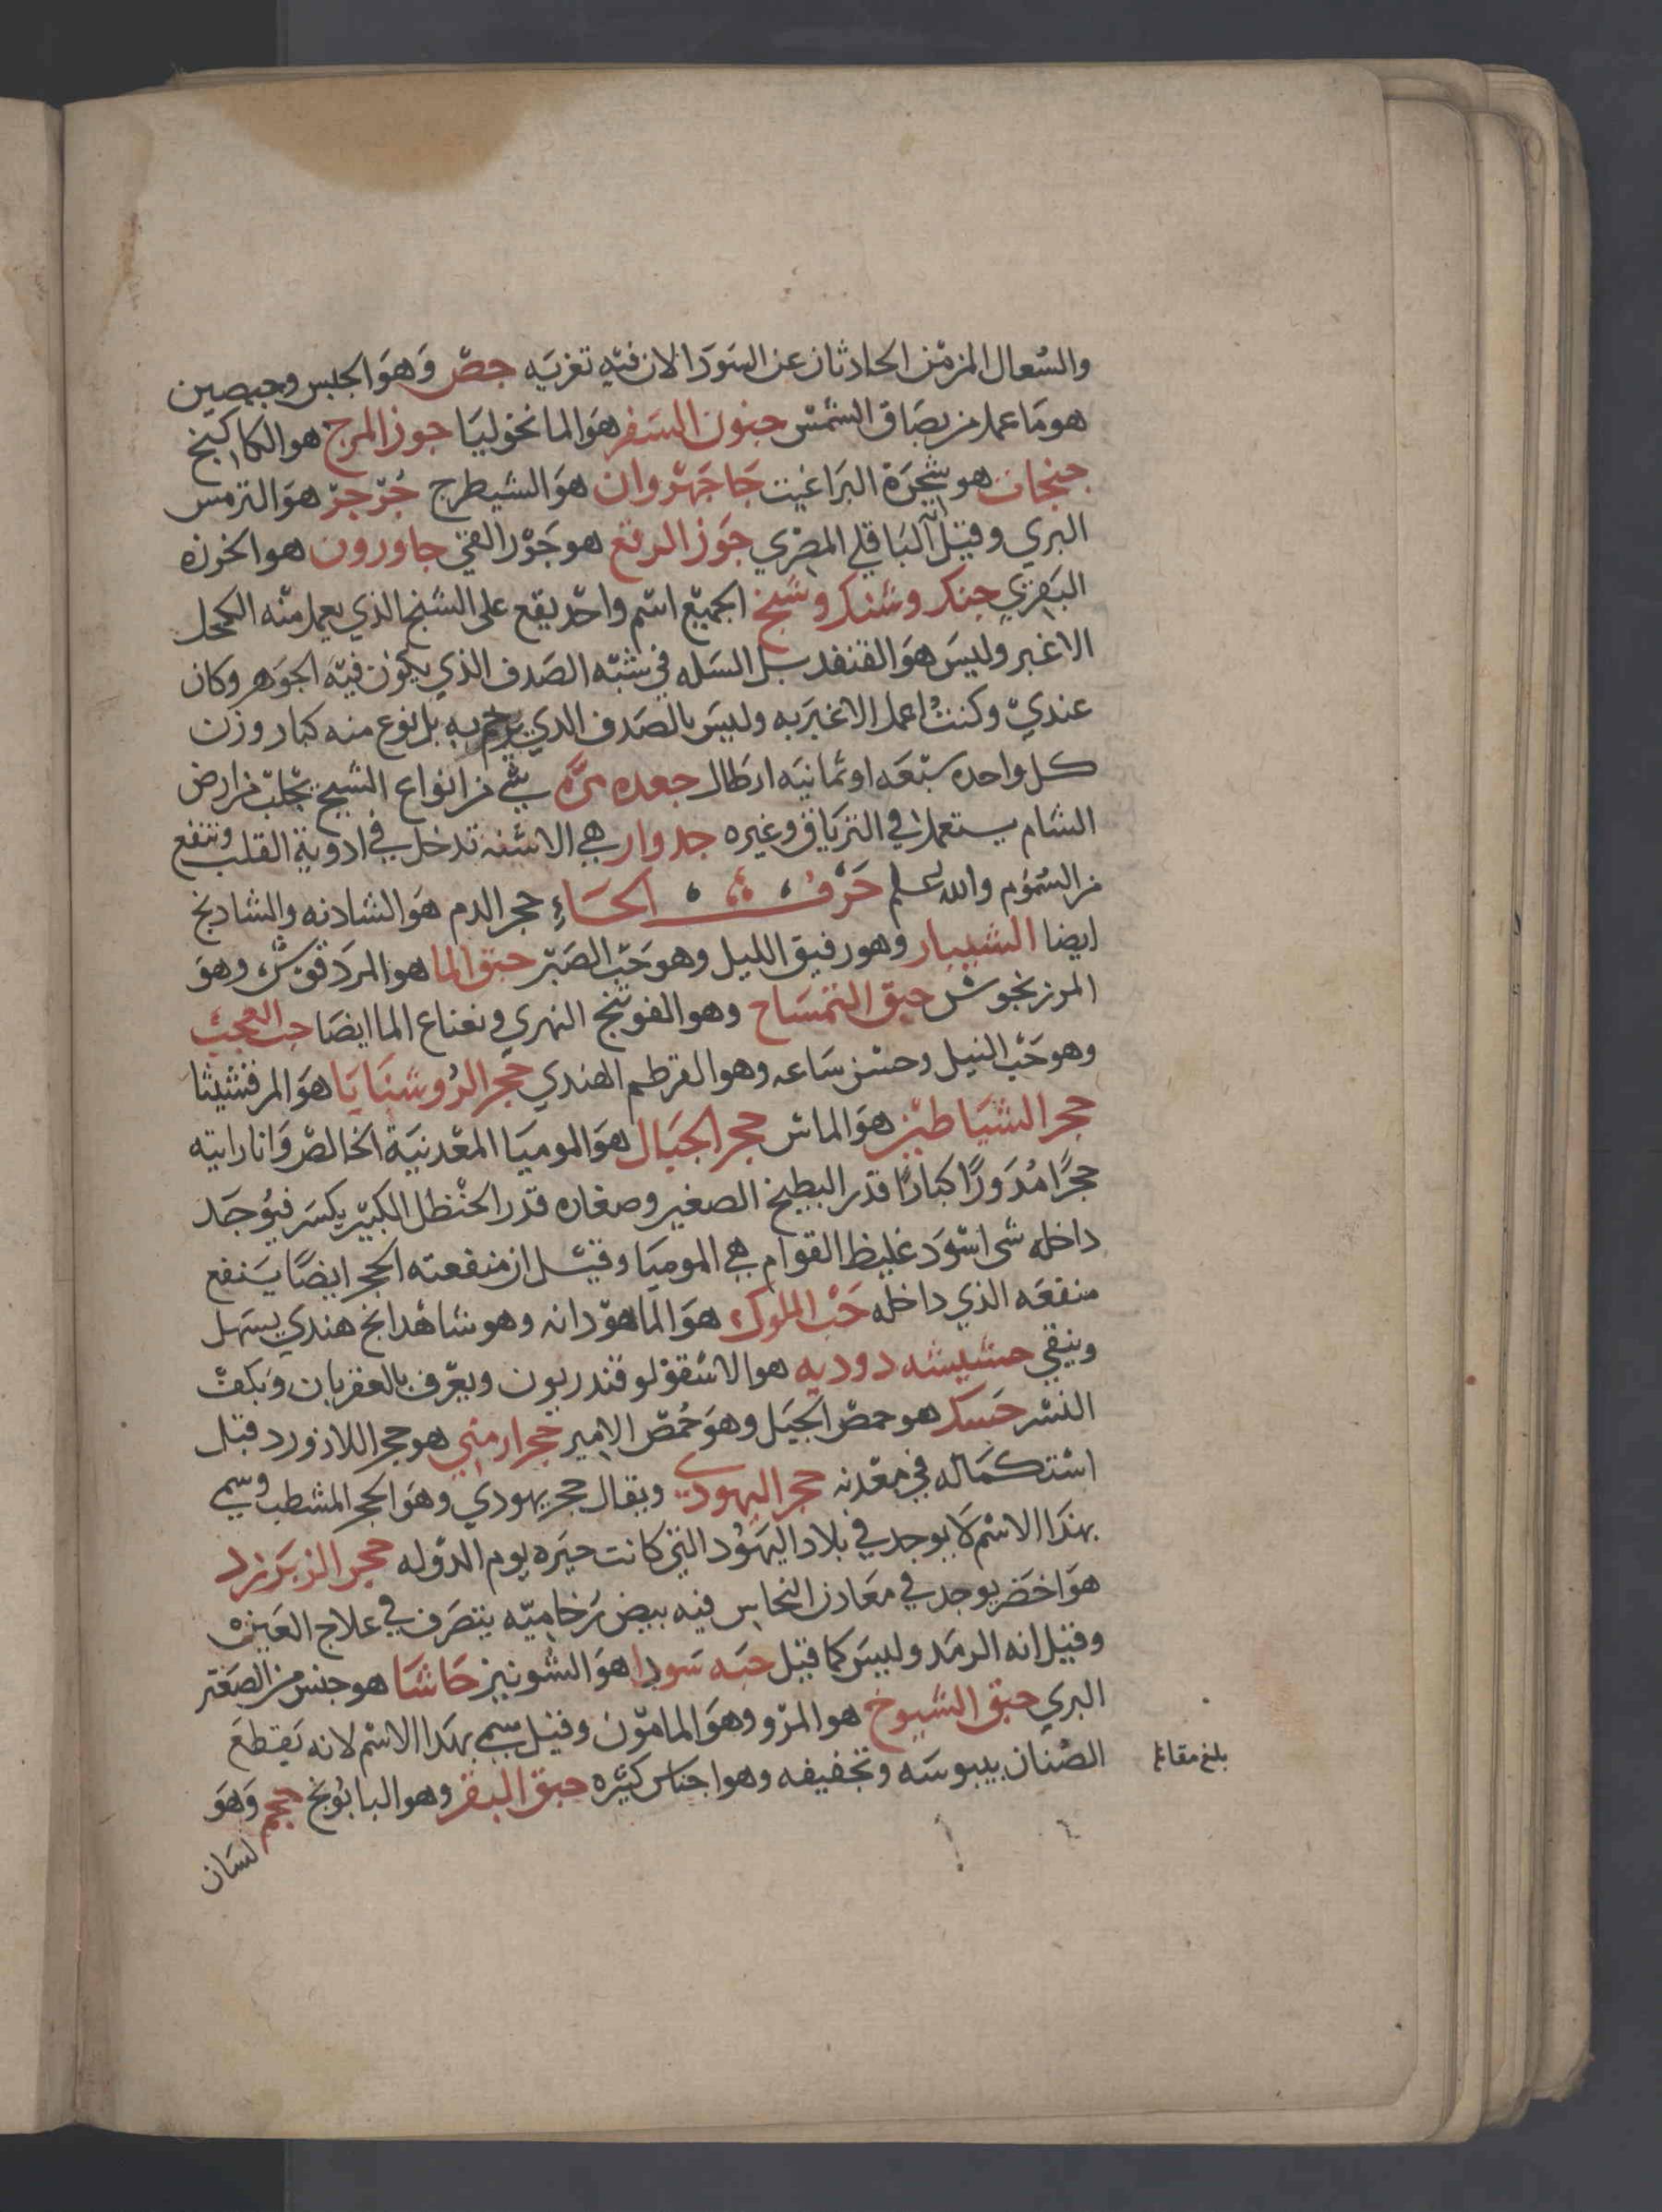 والسعال المزمن الحادثان عن السودا لان فيه تغريه جص وهو الجبس وجبصين
هو ما عمل من بصاق الشمس جنون السفر هو المانخوليا جوز المرج هو الكاكنج
جنجات هو شجرة البراغيت جاجهروان هو الشيطرج جرجر هو الترمس
البري وقيل انه الباقلي المصري جوز الرقع هو جوز القي جاورون هو الخرزه
البقري جنكر وشنكر وشنج الجميع اسم واحد يقع على الشنج الذي يعمل منه الكحل
الاغبر وليس هو القنفد بل السله في شبه الصدف الذي يكون فيه الجوهر وكان
عندي وكنت اعمل الاغبر به وليس بالصدف الدي به بل نوع منه كبار وزن
كل واحده سبعه او ثمانيه ارطال جعده مره شي من انواع الشيح يجلب من ارض
الشام يستعمل في الترياق وغيره جدوار هي الاشنه تدخل في ادوية القلب وتنفع
من السموم والله اعلم حرف الحاء حجر الدم هو الشادنه والشادنج
ايضا الشبيار وهو رفيق الليل وهو حب الصبر حبق الما هو المردقوش وهو
المرزنجوش حبق التمساح وهو الفوتنج النهري ونعناع الما ايضا حب العجب
وهو حب النيل وحسن ساعه وهو القرطم الهندي حجر الروشنايا هو المرقشيثا
حجر الشياطين هو الماس حجر الجبال هو الموميا المعدنية الخالص وانا رايته
حجرا مدورا كبارا قدر البطيخ الصغير وصغاره قدر الحنظل الكبير يكسر فيوجد
داخله شي اسود غليظ القوام هي الموميا وقيل ان منفعته الحجر ايضا ينفع
منفعه الذي داخله حب الملوك هو الماهودانه وهو شاهدانج هندي يسهل
وينقي حشيشه دوديه هو الاسقولوقندريون ويعرف بالعقربان وبكف
النسر حسك هو حمص الجبل وهو حمص الامير حجر ارمني هو حجر اللازورد قبل
استكماله في معدنه حجر اليهودي ويقال حجر يهودي وهو الحجر المشطب وسمي
بهذا الاسم لا يوجد في بلاد اليهود التي كانت حيره يوم الدوله حجر الزبرزد
هو اخضر يوجد في معادن النحاس فيه بيض رخاميه يتصرف في علاج العين
وقيل انه الرمد وليس كما قيل حبه سودا هو الشونيز حاشا هو جنس من الصعتر
البري حبق الشيوخ هو المرو وهو المامون وقيل سمي بهدا الاسم لانه يقطع
الصنان بيبوسه وتجفيفه وهو اجناس كثيره حبق البقر وهو البابونج حجم وهو
لسان
بلغ مقابله